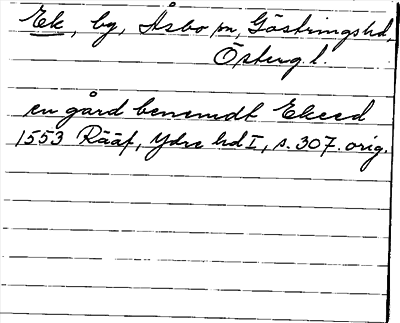 Ek, by, Åsbo sn, Göstringshd,
Österg l.
en gård benemdt Ekeed
1553 Rääf, Ydre hd I, s. 307. orig.